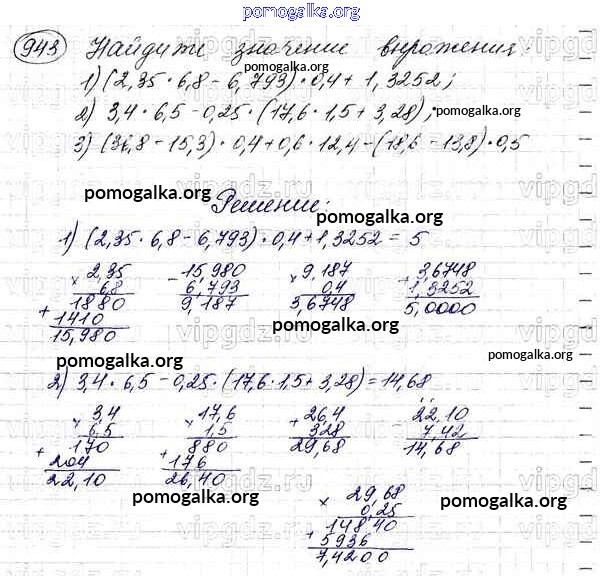 pomogalka.org
943 Найдите значение выражения:
1) (2,35 · 6,8 - 6,793) · 0,4 + 1,3252;
2) 3,4 · 6,5 - 0,25 · (17,6 · 1,5 + 3,28);
pomogalka.org
3) (36,8 - 15,3) · 0,4 + 0,6 · 12,4 - (18,6 - 13,8) · 0,5
pomogalka.org
Решение:
pomogalka.org
1) (2,35 · 6,8 - 6,793) · 0,4 + 1,3252 = 5
× 2,35 - 15,980 × 9,187 + 3,6748
6,8 6,793 0,4 1,3252
1880 9,187 3,6748 5,0000
+ 1410
15,980
pomogalka.org
pomogalka.org
pomogalka.org
2) 3,4 · 6,5 - 0,25 · (17,6 · 1,5 + 3,28) = 14,68
× 3,4 × 17,6 + 26,4 - 22,10
6,5 1,5 328 7,42
170 880 29,68 14,68
+ 204 + 176
22,10 26,40
pomogalka.org
pomogalka.org
× 29,68
0,25
14840
+ 5936
7,4200
vipgdz.ru